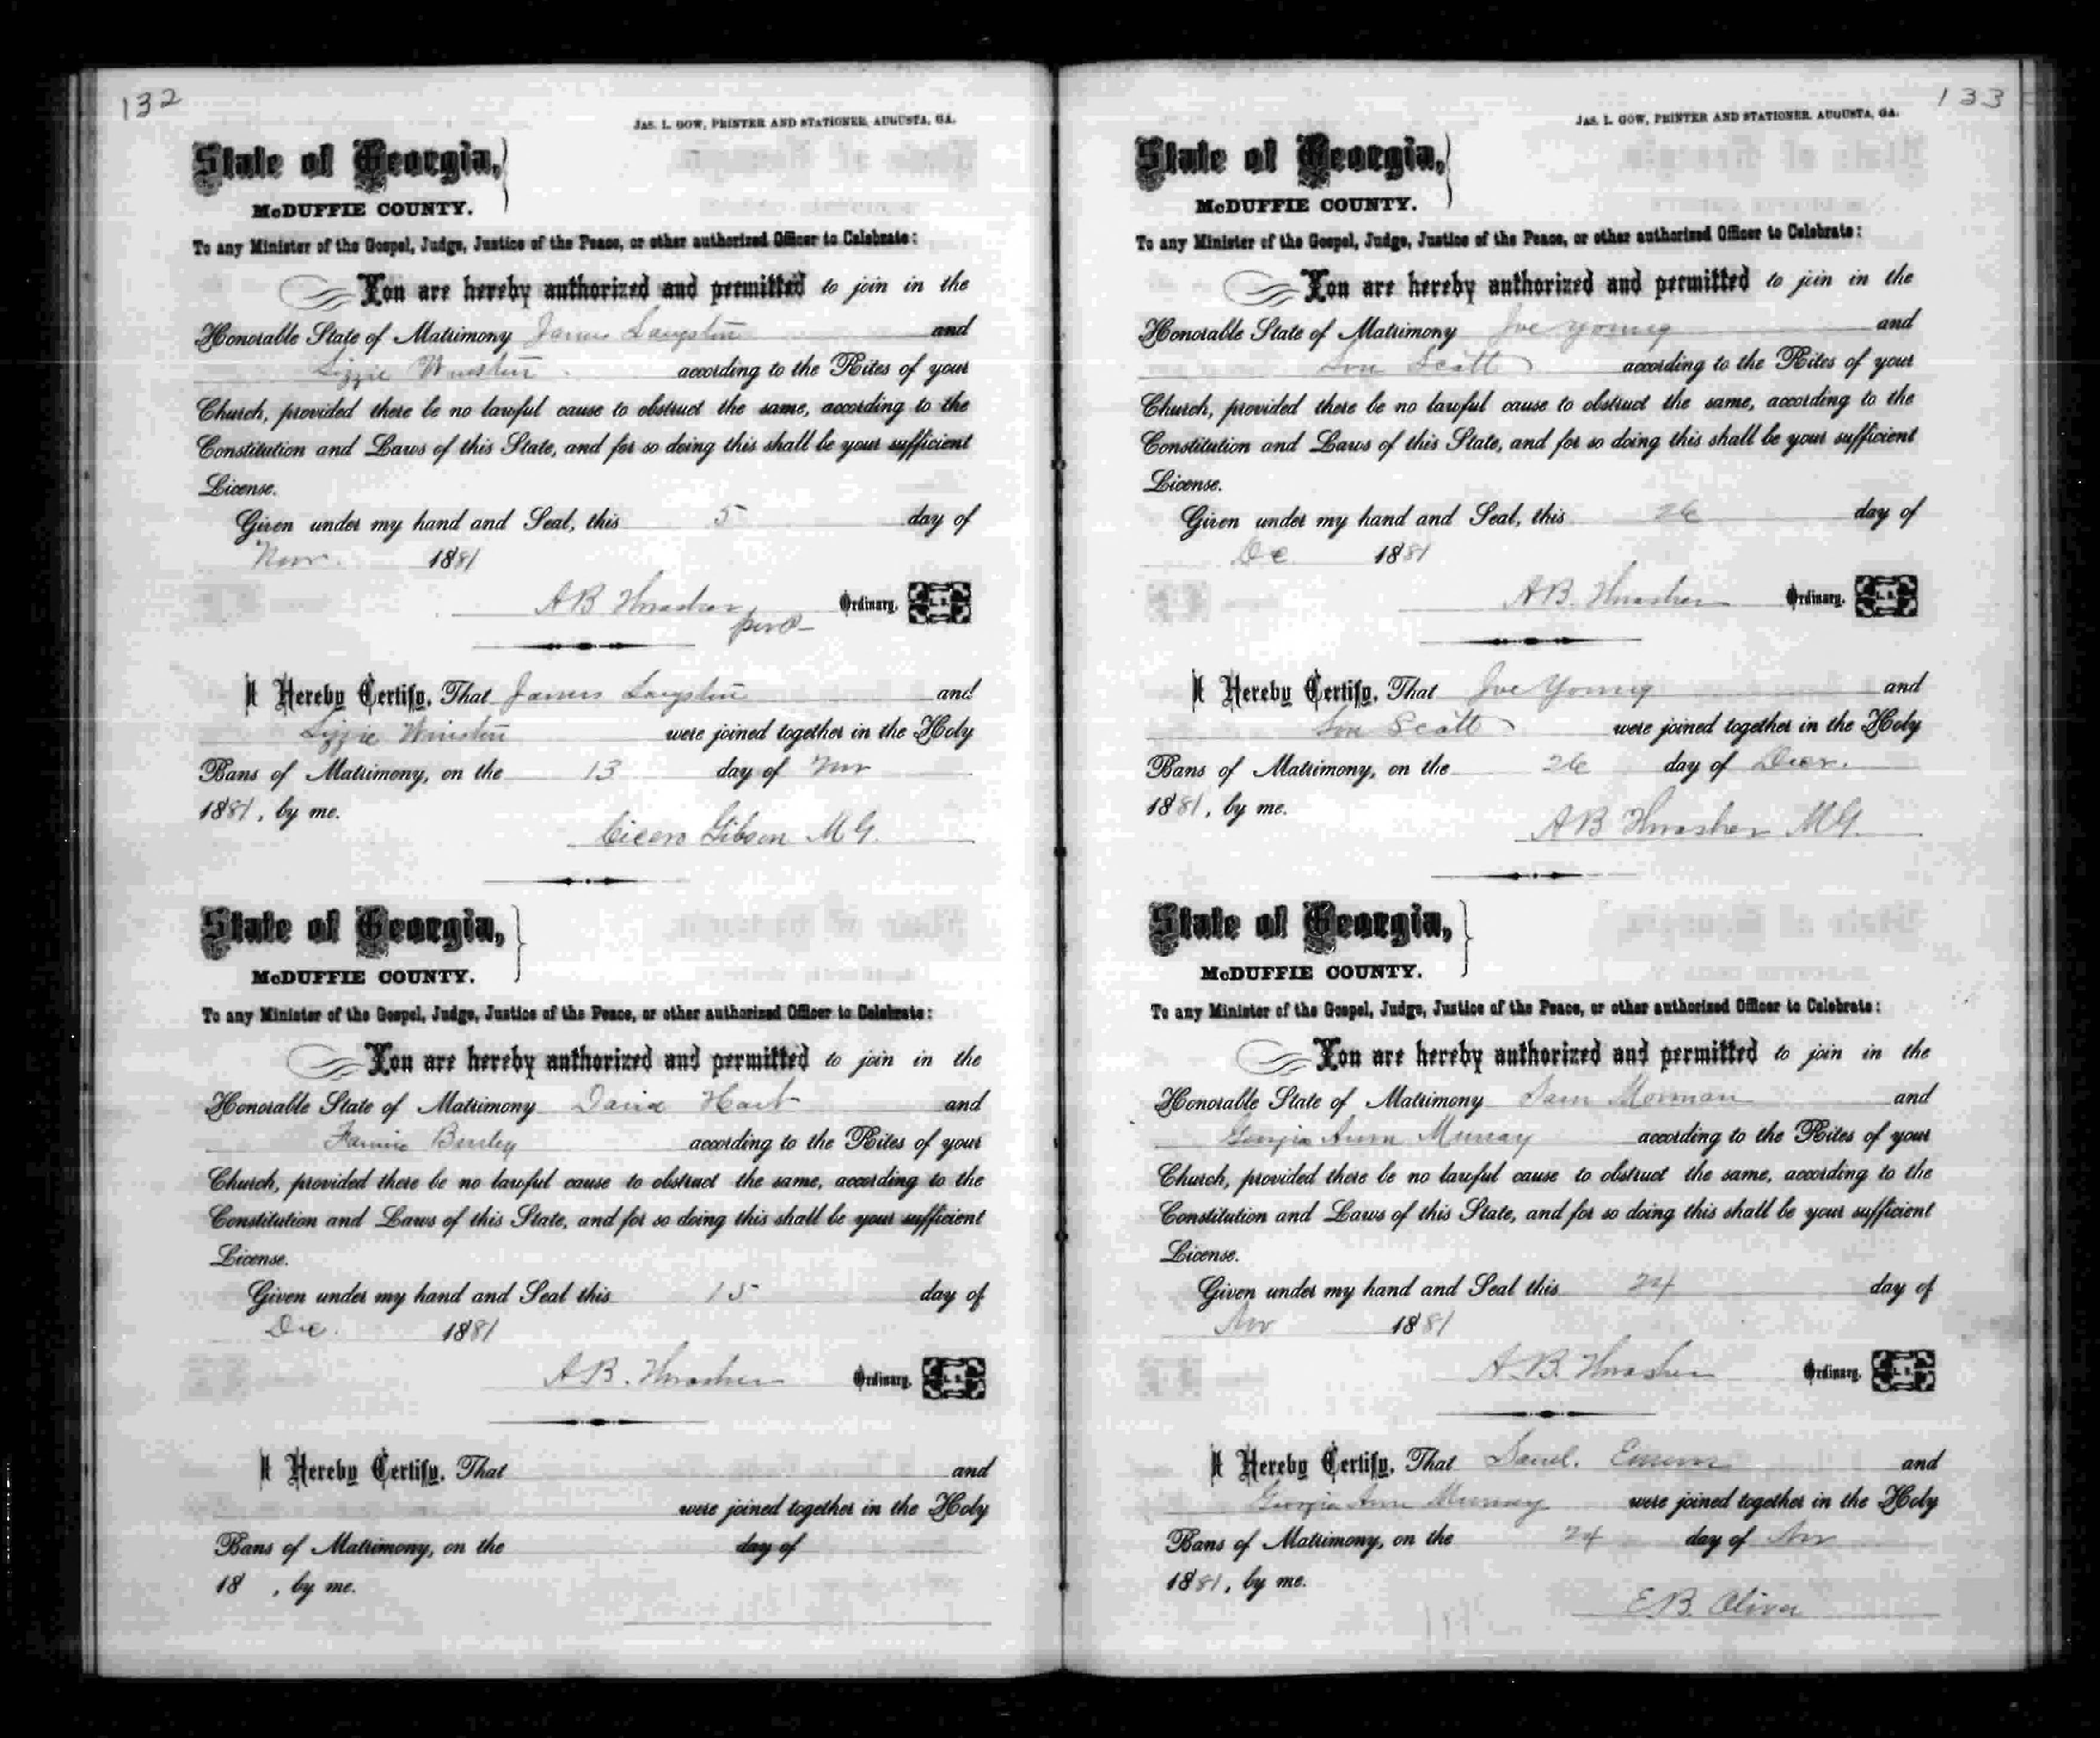 132
JAS. L. GOW, PRINTER AND STATIONER, AUGUSTA, GA.
State of Georgia,
McDUFFIE COUNTY.
To any Minister of the Gospel, Judge, Justice of the Peace, or other authorized Officer to Celebrate:
You are hereby authorized and permitted to join in the
Honorable State of Matrimony James Langston and
Lizzie Winston according to the Rites of your
Church, provided there be no lawful cause to obstruct the same, according to the
Constitution and Laws of this State, and for so doing this shall be your sufficient
License.
Given under my hand and Seal, this 5 day of
Nov. 1881
A B Thrasher Ordinary. L. S.
I Hereby Certify, That James Langston and
Lizzie Winston were joined together in the Holy
Bans of Matrimony, on the 13 day of Nov
1881, by me.
Cicero Gibson M G.
State of Georgia,
McDUFFIE COUNTY.
To any Minister of the Gospel, Judge, Justice of the Peace, or other authorized Officer to Celebrate:
You are hereby authorized and permitted to join in the
Honorable State of Matrimony David Hart and
Fannie Burley according to the Rites of your
Church, provided there be no lawful cause to obstruct the same, according to the
Constitution and Laws of this State, and for so doing this shall be your sufficient
License.
Given under my hand and Seal this 15 day of
Dec. 1881
A.B. Thrasher Ordinary. L. S.
I Hereby Certify, That and
were joined together in the Holy
Bans of Matrimony, on the day of
18 , by me.
133
JAS. L. GOW, PRINTER AND STATIONER, AUGUSTA, GA.
State of Georgia,
McDUFFIE COUNTY.
To any Minister of the Gospel, Judge, Justice of the Peace, or other authorized Officer to Celebrate:
You are hereby authorized and permitted to join in the
Honorable State of Matrimony Joe Young and
Lou Scott according to the Rites of your
Church, provided there be no lawful cause to obstruct the same, according to the
Constitution and Laws of this State, and for so doing this shall be your sufficient
License.
Given under my hand and Seal, this 26 day of
De 1881
A B. Thrasher Ordinary. L. S.
I Hereby Certify, That Joe Young and
Lou Scott were joined together in the Holy
Bans of Matrimony, on the 26 day of Decr.
1881, by me.
A B Thrasher M G.
State of Georgia,
McDUFFIE COUNTY.
To any Minister of the Gospel, Judge, Justice of the Peace, or other authorized Officer to Celebrate:
You are hereby authorized and permitted to join in the
Honorable State of Matrimony Sam Morman and
Georgia Ann Murray according to the Rites of your
Church, provided there be no lawful cause to obstruct the same, according to the
Constitution and Laws of this State, and for so doing this shall be your sufficient
License.
Given under my hand and Seal this 24 day of
Nov 1881
A.B. Thrasher Ordinary. L. S.
I Hereby Certify, That and
Georgia Ann Murray were joined together in the Holy
Bans of Matrimony, on the 24 day of Nov
1881, by me.
E.B. Oliver